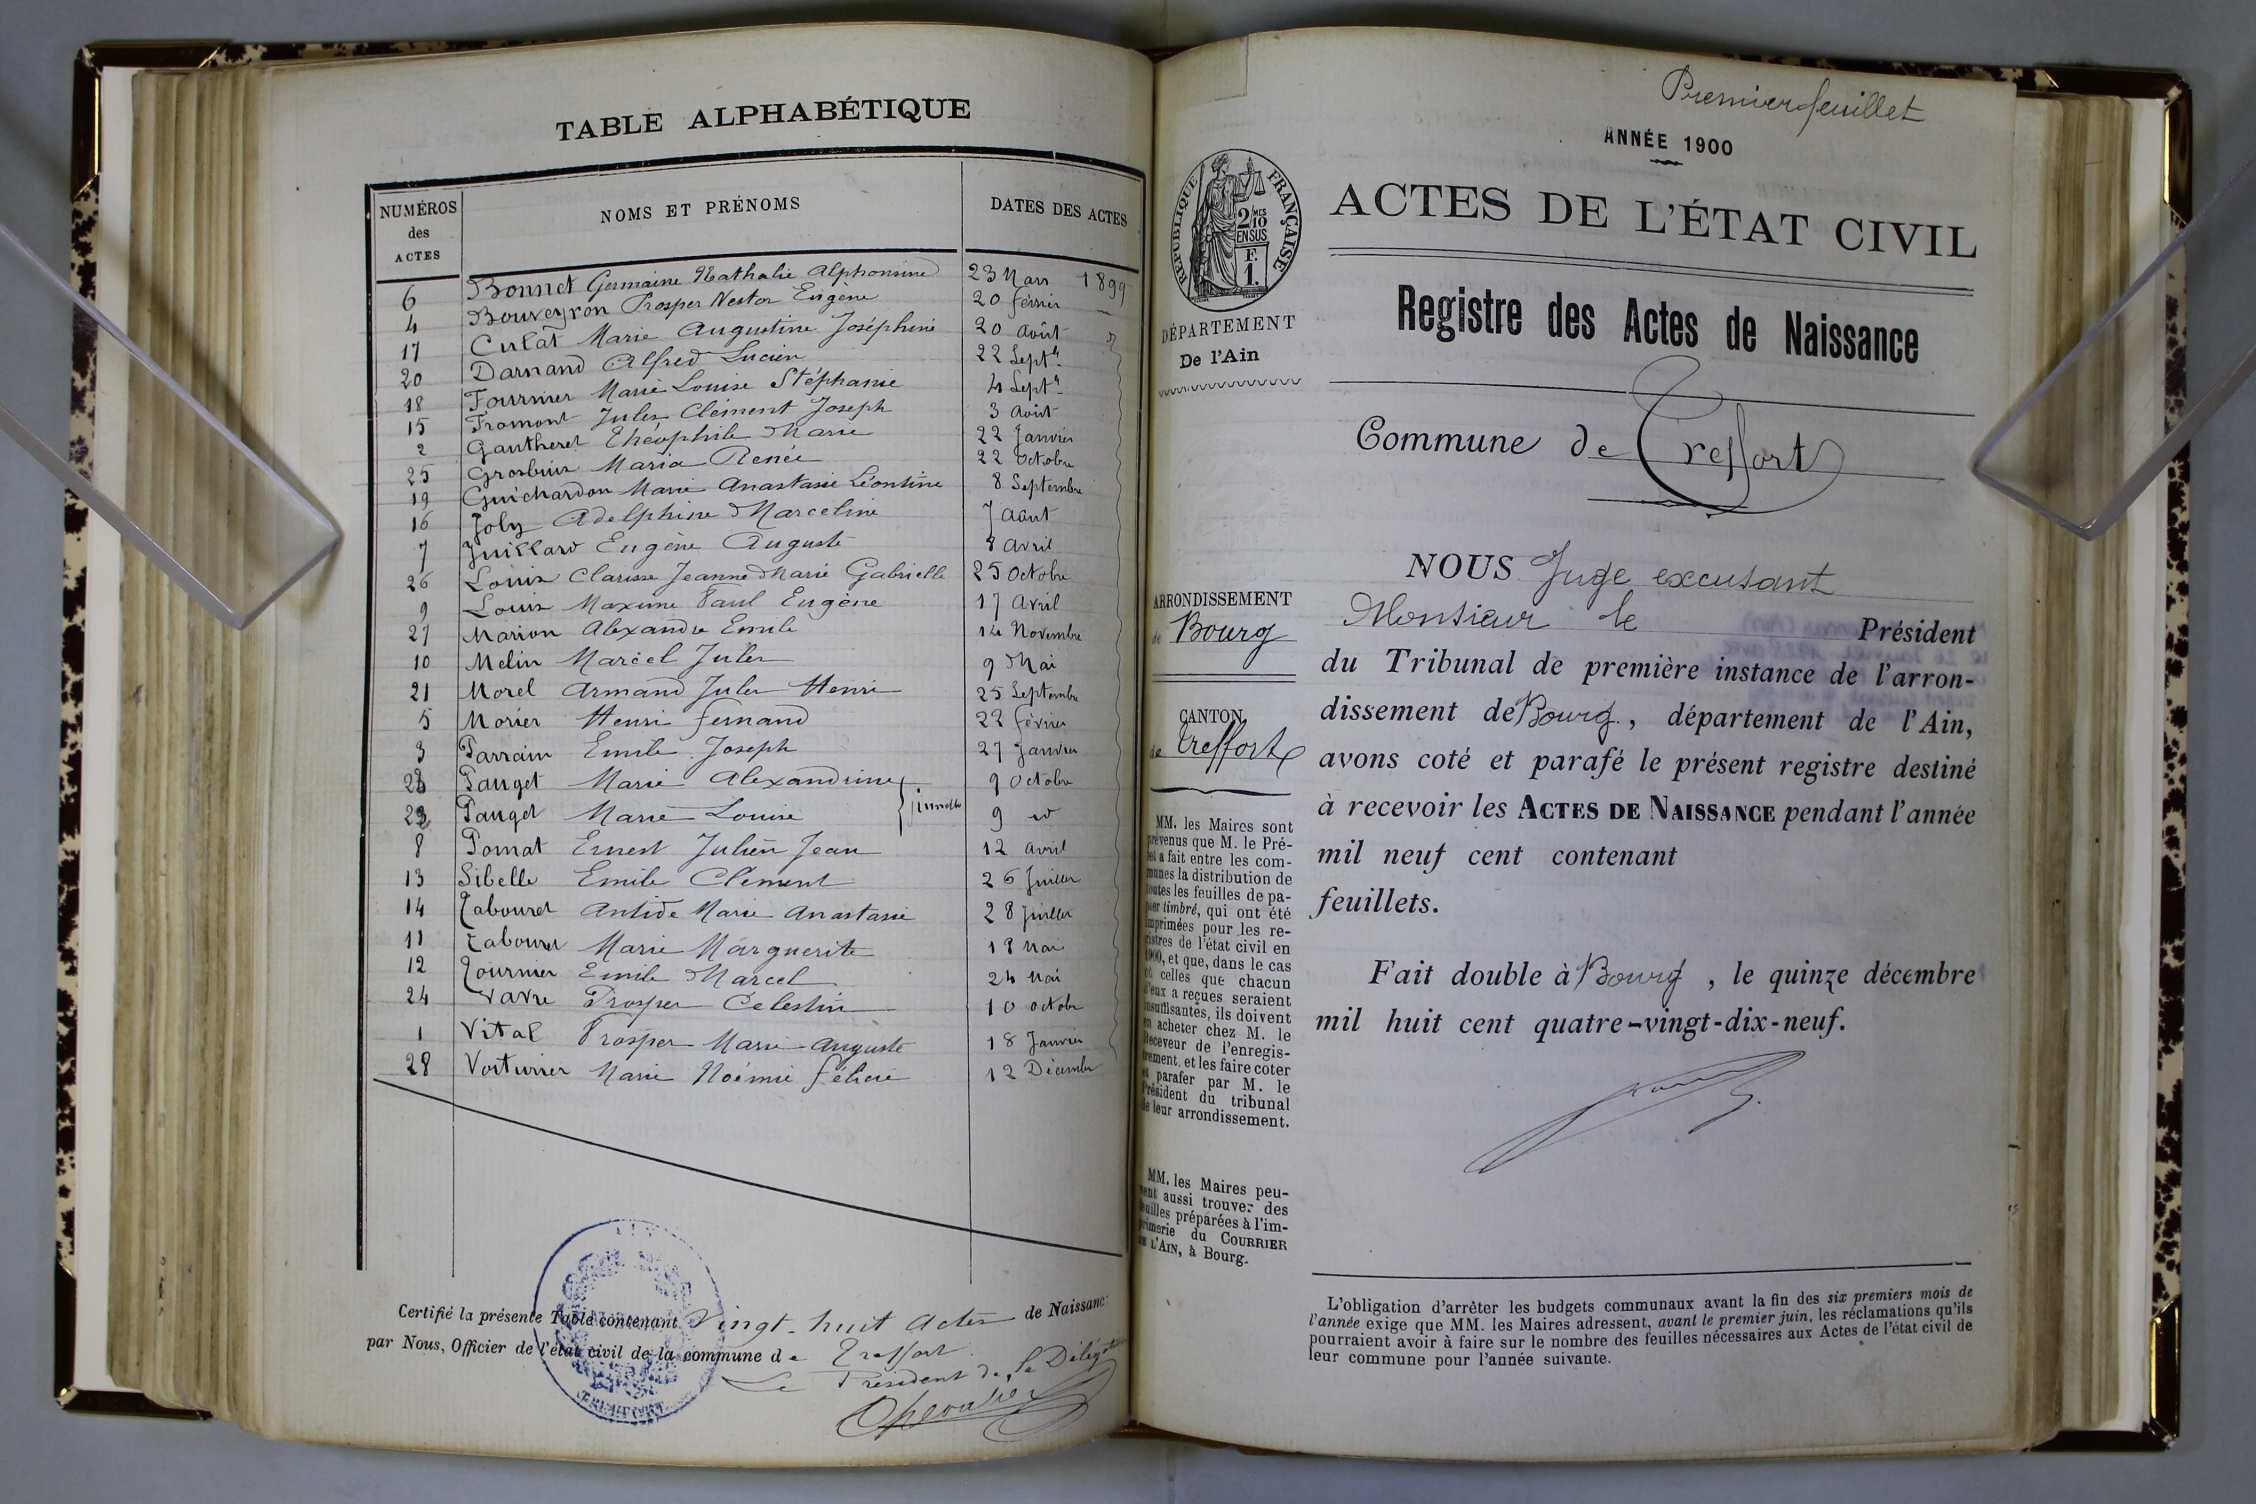 TABLE ALPHABÉTIQUE
NUMÉROS des ACTES NOMS ET PRÉNOMS DATES DES ACTES
6 Bonnet Germaine Nathalie Alphonsine 23 Mars 1899
4 Bouveyron Prosper Nestor Eugène 20 février
17 Culat Marie Augustine Joséphine 20 août
20 Darnand Alfred Lucien 22 Sept
18 Fournier Marie Louise Stéphanie 4 Sept
15 Fromont Jules Clément Joseph 3 août
2 Gautheret Théophile Marie 22 Janvier
25 Grosbuis Maria Renée 22 Octobre
19 Guichardon Marie Anastasie Léontine 8 Septembre
16 Joly Adelphine Marceline 7 août
7 Juillard Eugène Auguste 8 avril
26 Louis Clarisse Jeanne Marie Gabrielle 25 Octobre
9 Louis Maxime Paul Eugène 17 avril
27 Marion Alexandre Emile 14 Novembre
10 Melin Marcel Jules 9 Mai
21 Morel Armand Jules Henri 25 Septembre
5 Morier Henri Fernand 22 février
3 Parrain Emile Joseph 27 Janvier
23 Pauget Marie Alexandrine 9 Octobre
22 Pauget Marie Louise jumelles 9 d
8 Pomat Ernest Julien Jean 12 avril
13 Sibelle Emile Clément 26 Juillet
14 Tabouret Antide Marie Anastasie 28 Juillet
11 Tabouret Marie Marguerite 18 Mai
12 Tournier Emile Marcel 24 Mai
24 Vavre Prosper Célestin 10 octobre
1 Vital Prosper Marie Auguste 18 Janvier
28 Voiturier Marie Noémie Félicie 12 Décembre
Certifié la présente Table contenant Vingt-huit actes de Naissance
par Nous, Officier de l'état civil de la commune de Treffort.
Le Président de la Délégation
Chevalier
Premier feuillet
ANNÉE 1900
ACTES DE L'ÉTAT CIVIL
RÉPUBLIQUE FRANÇAISE
2/10 MES
EN SUS
F.
1.
DÉPARTEMENT
De l'Ain
Registre des Actes de Naissance
Commune de Treffort
ARRONDISSEMENT
de Bourg
CANTON
de Treffort
MM. les Maires sont
prévenus que M. le Pré-
fet a fait entre les com-
munes la distribution de
toutes les feuilles de pa-
pier timbré, qui ont été
imprimées pour les re-
gistres de l'état civil en
1900, et que, dans le cas
où celles que chacun
d'eux a reçues seraient
insuffisantes, ils doivent
en acheter chez M. le
Receveur de l'enregis-
trement, et les faire coter
et parafer par M. le
Président du tribunal
de leur arrondissement.
MM. les Maires peu-
vent aussi trouver des
feuilles préparées à l'im-
primerie du COURRIER
DE L'AIN, à Bourg.
NOUS Juge excusant
Monsieur le Président
du Tribunal de première instance de l'arron-
dissement de Bourg, département de l'Ain,
avons coté et parafé le présent registre destiné
à recevoir les ACTES DE NAISSANCE pendant l'année
mil neuf cent contenant
feuillets.
Fait double à Bourg, le quinze décembre
mil huit cent quatre-vingt-dix-neuf.
L'obligation d'arrêter les budgets communaux avant la fin des six premiers mois de
l'année exige que MM. les Maires adressent, avant le premier juin, les réclamations qu'ils
pourraient avoir à faire sur le nombre des feuilles nécessaires aux Actes de l'état civil de
leur commune pour l'année suivante.